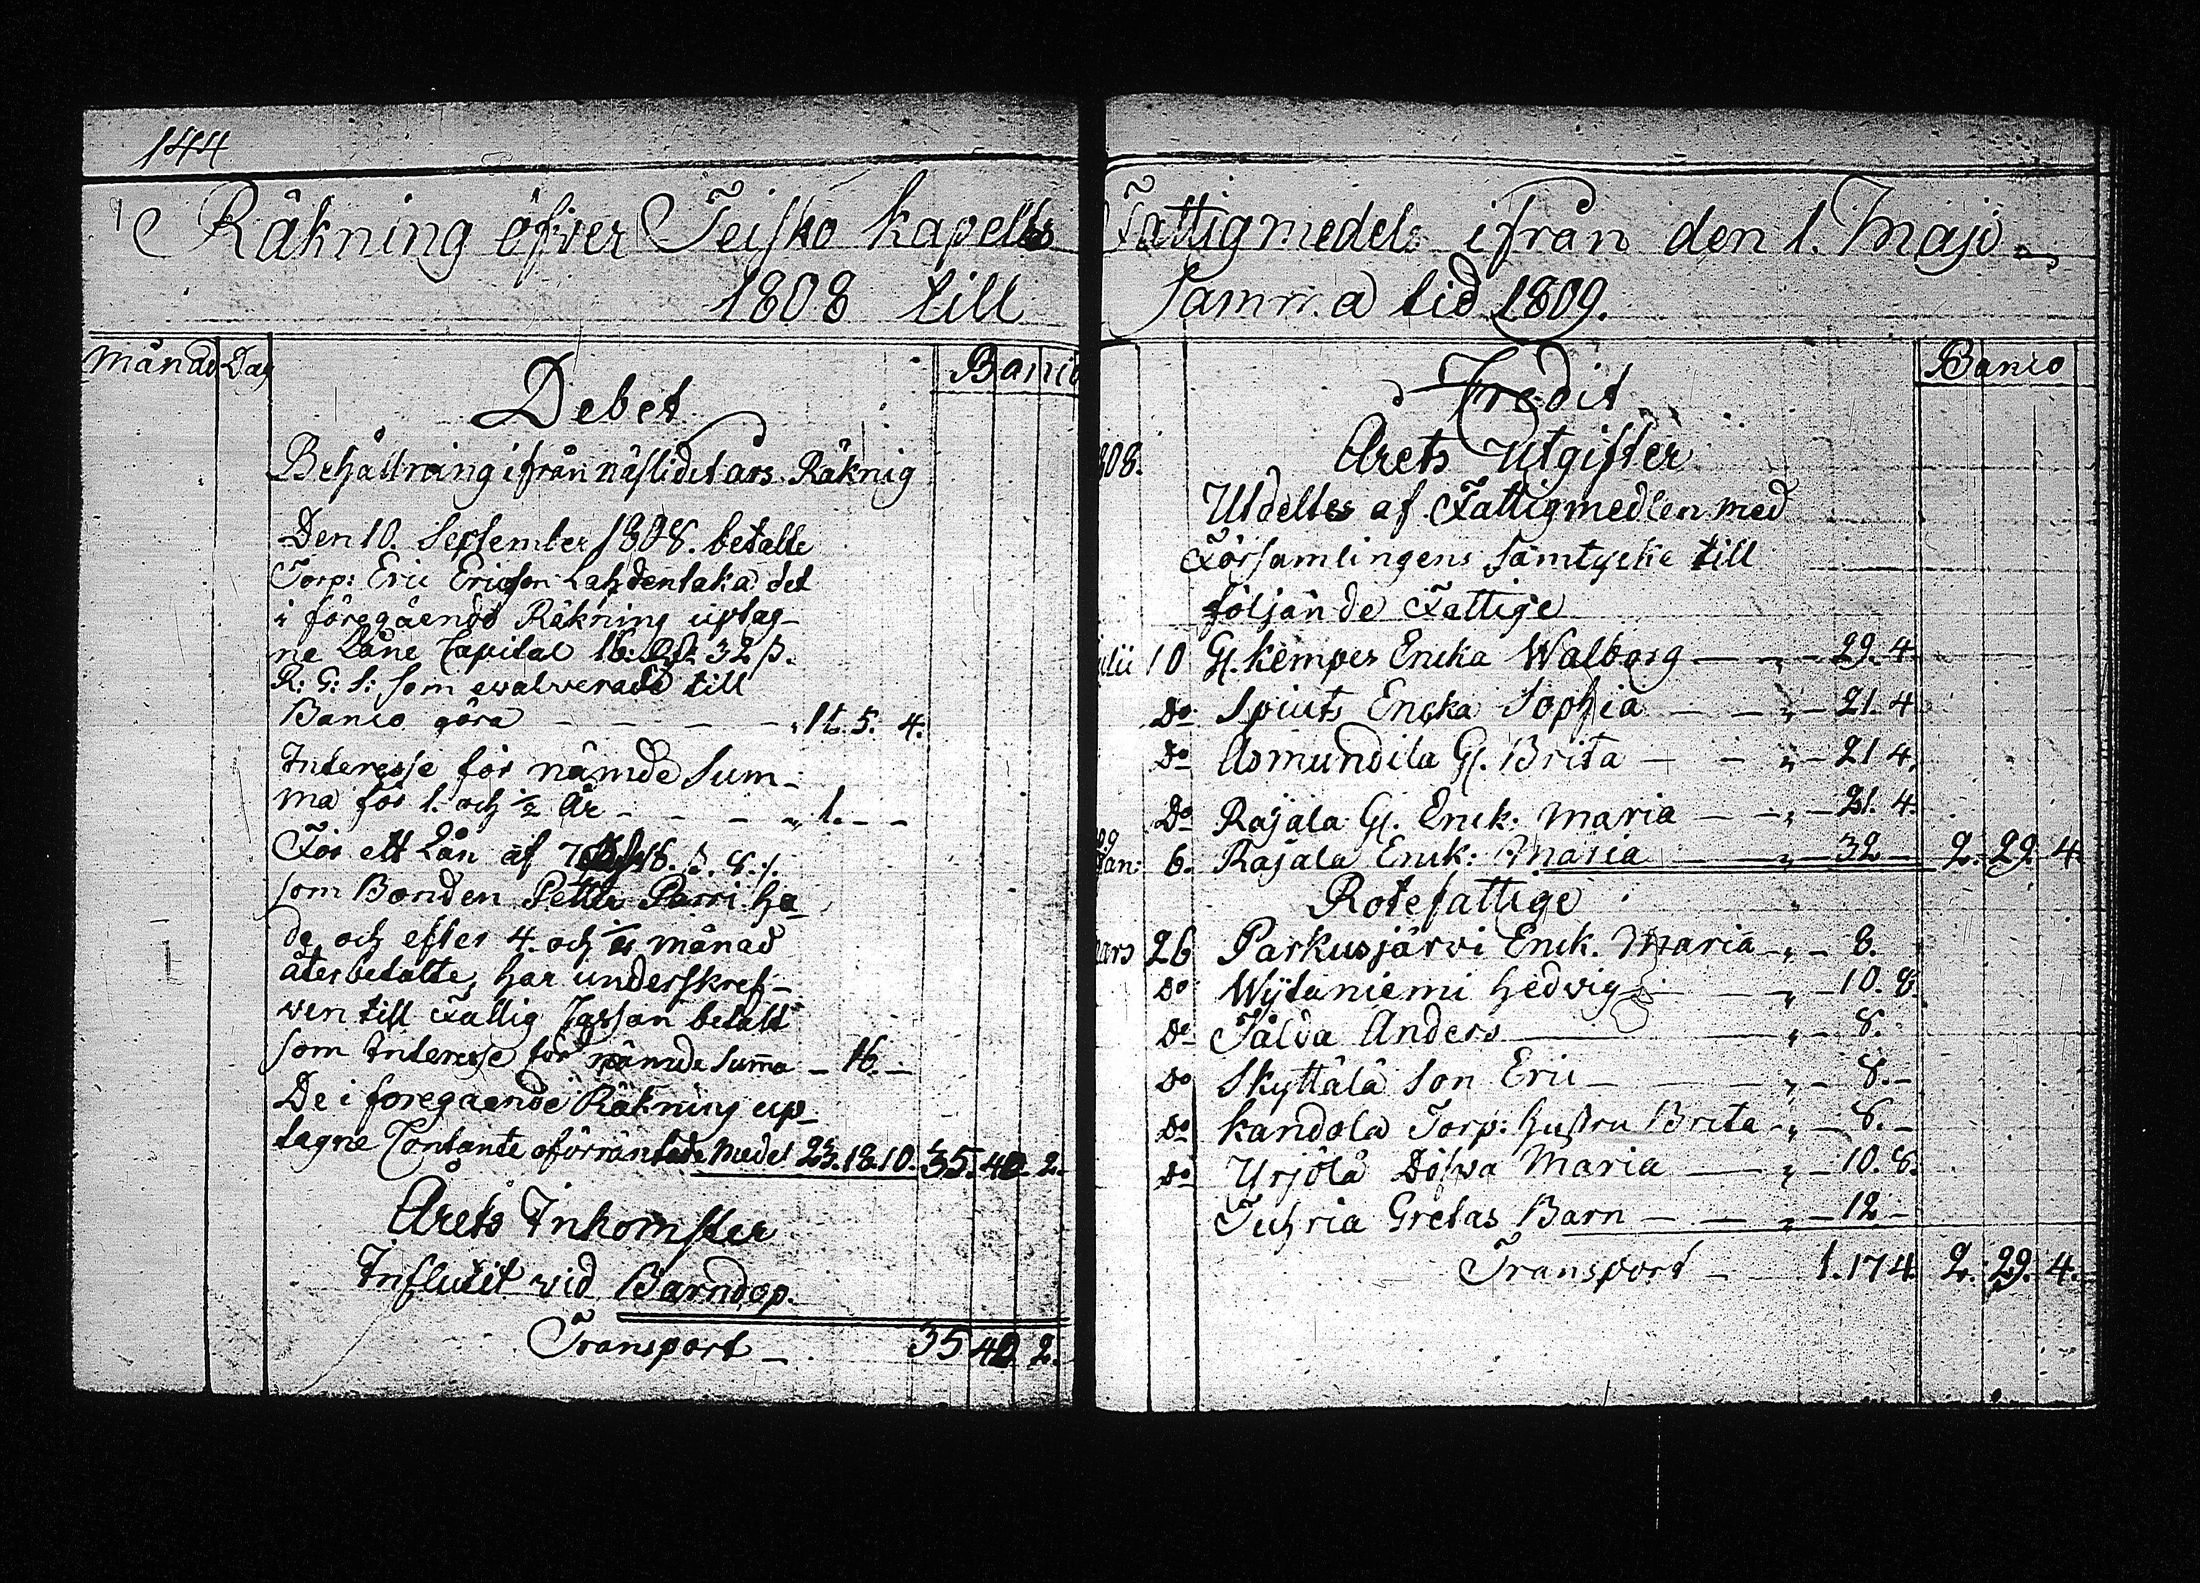 144
Räkning öfver Teisko kapells Fattigmedels ifrån den 1. Maji
1808 till samma tid 1809.
Månad Dag
Banco
Debet
Behållning ifrån näflidet ars Räknig
Den 10. September 1808. betalte
Torp: Eric Ericson Lahdentaka det
i föregående Räkning uptag-
ne Låne Capital 16: 32 ß.
R: G: S: som evalverade till
Banco göra - - - - 11. 5. 4.
Interesse för nämde Sum-
ma för 1. och ½ År - - - " 1. - -
För ett Lån af 8. ß. 8.
som Bonden Petter Parri ha-
de, och efter 4. och månad
återbetalte, har underskref-
ven till Fattig Cassan betalt
som Interesse för nämde Summa - 16. -
De i foregaende Räkning up-
tagne Contante oförräntade Medel 23. 18. 10. 35. 40. 2.
Årets Inkomster
Influtit vid Barndop.
Transport - 35 40 2.
Banco
Credit
808. Årets Utgifter
Utdeltes af Fattigmedlen med
Församlingens samtycke till
följande Fattige
ulii 10 Gl. Kempes Encka Walborg - " - 29. 4.
Do Spiuts Encka Sophia - - " - 21. 4
Do Asmundila Gl. Brita - - " - 21 4.
Do Rajala Gl. Enck. Maria - - " - 21. 4.
09
Jan: 6. Rajala Enck: Maria - " - 32 - 2. 29. 4.
Rotefattige
ars 26 Parkusjärvi Enck. Maria - " - 8.
Do Wÿtaniemi Hedvig - " - 10. 8.
Do Tålva Anders - " - 8.
Do Skyttälä Son Eric - - " - 8. -
Do Kandola Torp: Hustru Brita - " - 8. -
Do Urjölä Döfva Maria - " - 10. 8.
Tuhria Gretas Barn - - " - 12 -
Transport - 1. 17 4. 2. 29. 4. -